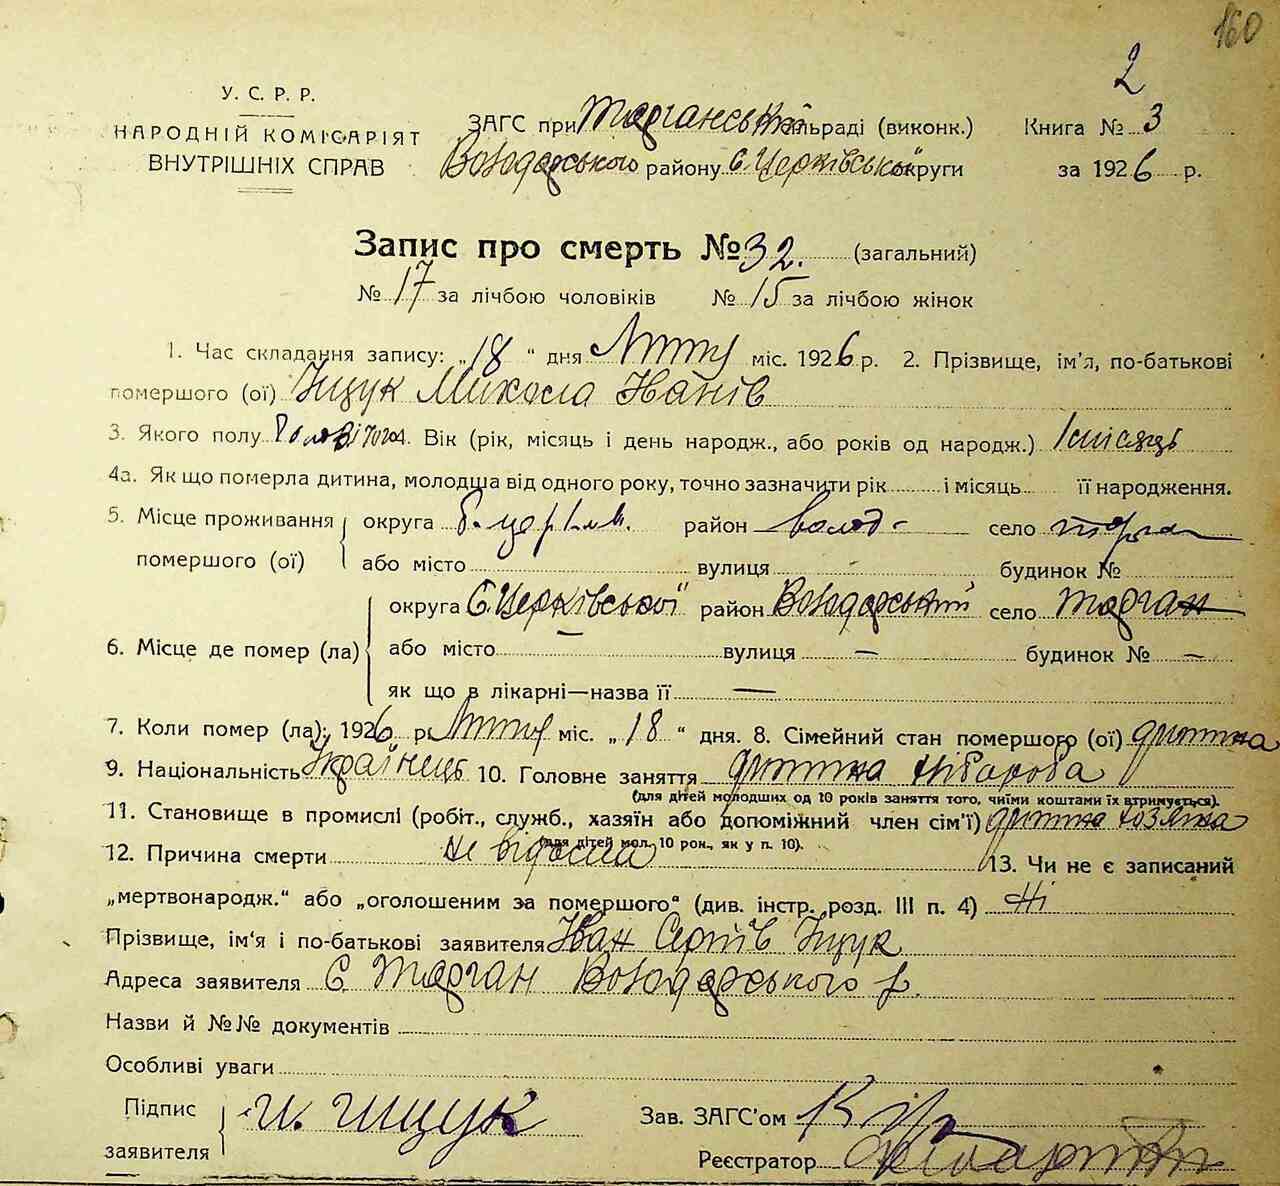 160
2
У. С. Р. Р.
НАРОДНІЙ КОМІСАРІЯТ
ВНУТРІШНІХ СПРАВ
ЗАГС при Тарганській сільраді (виконк.) Книга № 3
Володарського району Б. Церківської округи за 1926 р.
Запис про смерть № 32. (загальний)
№ 17 за лічбою чоловіків № 15 за лічбою жінок
1. Час складання запису: „18“ дня міс. 1926 р. 2. Прізвище, ім'я, по-батькові
помершого (ої) Іщук Микола Іванів
3. Якого полу Вік (рік, місяць і день народж., або років од народж.) 1 місяць
4а. Як що померла дитина, молодша від одного року, точно зазначити рік і місяць її народження.
5. Місце проживання округа Б. церків. район Волод- село Тарган
помершого (ої) або місто вулиця будинок №
округа Б. Церківської район Володарський село Тарган
6. Місце де помер (ла) або місто — вулиця — будинок № —
як що в лікарні—назва її —
7. Коли помер (ла): 1926 р. міс. „18“ дня. 8. Сімейний стан помершого (ої) дитина
9. Національність Українець 10. Головне заняття дитина хлібороба
(для дітей молодших од 10 років заняття того, чиїми коштами їх втримується).
11. Становище в промислі (робіт., служб., хазяїн або допоміжний член сім'ї) дитина хозяїна
(для дітей мол. 10 рок., як у п. 10).
12. Причина смерти не відома 13. Чи не є записаний
„мертвонародж.“ або „оголошеним за помершого“ (див. інстр. розд. III п. 4) Ні
Прізвище, ім'я і по-батькові заявителя Іван Сергіїв Іщук
Адреса заявителя С. Тарган Володарського р.
Назви й №№ документів
Особливі уваги
Підпис
заявителя И. Ищук
Зав. ЗАГС'ом
Реєстратор